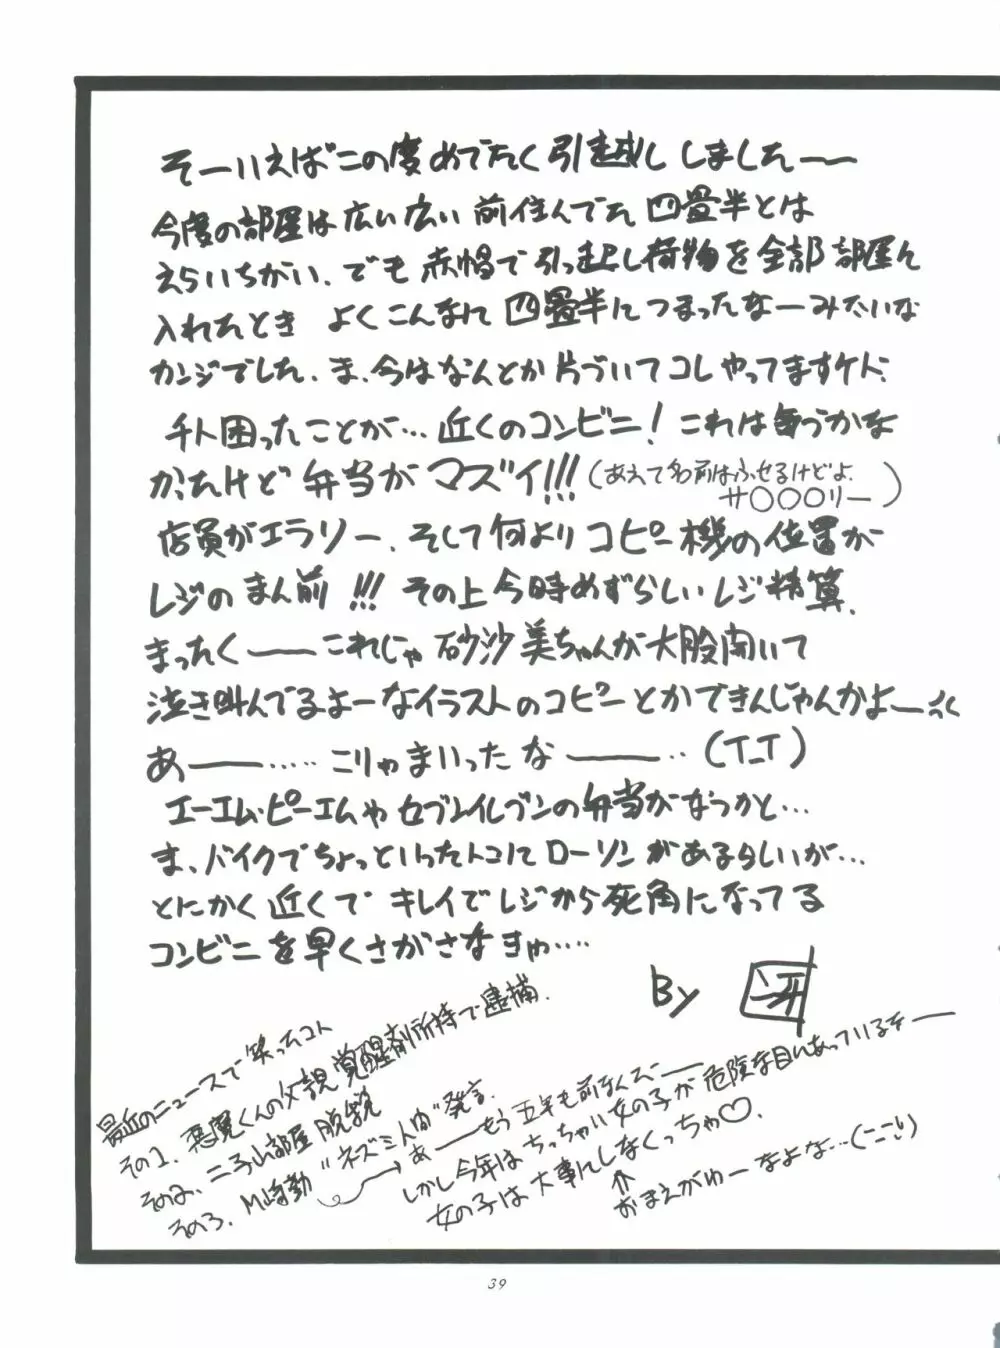 そーいえばこの度めでたく引越ししました——
今度の部屋は広い広い 前住んでた 四畳半とは
えらいちがい、でも 赤帽で引っ越し荷物を全部 部屋ん
入れたとき よくこんなに四畳半につまったなーみたいな
カンジでした、ま、今はなんとか片づいてコレやってますケド、
チト困ったことが… 近くのコンビニ! これは毎うかな
かったけど 弁当がマズイ!!! (あえて名前はふせるけどよ、
サ〇〇〇リー)
店員がエラソー、そして何よりコピー機の位置が
レジのまん前!!! その上今時めずらしいレジ精算、
まったく——これじゃ 砂沙美ちゃんが大股開いて
泣き叫んでるよーなイラストのコピーとかできんじゃんかよー
あ——‥‥‥こりゃまいったな——‥(T_T)
エーエム・ピーエムやセブンイレブンの弁当がなつかし…
ま、バイクでちょっといったトコにローソンがあるらしいが…
とにかく近くで キレイでレジから死角になってる
コンビニを早くさがさなきゅ‥‥
By
最近のニュースで笑ったコト
その1、悪魔くんの父親覚醒剤所持で逮捕、
その2、二子山部屋脱税
その3、M崎勤“ネズミ人間”発言、
→あ——もう五年も前なんだ——
しかし今年はちっちゃい女の子が危険な目にあっているな——
女の子は大事にしなくっちゃ♡、
⇑
おまえがゆーなよな…
39